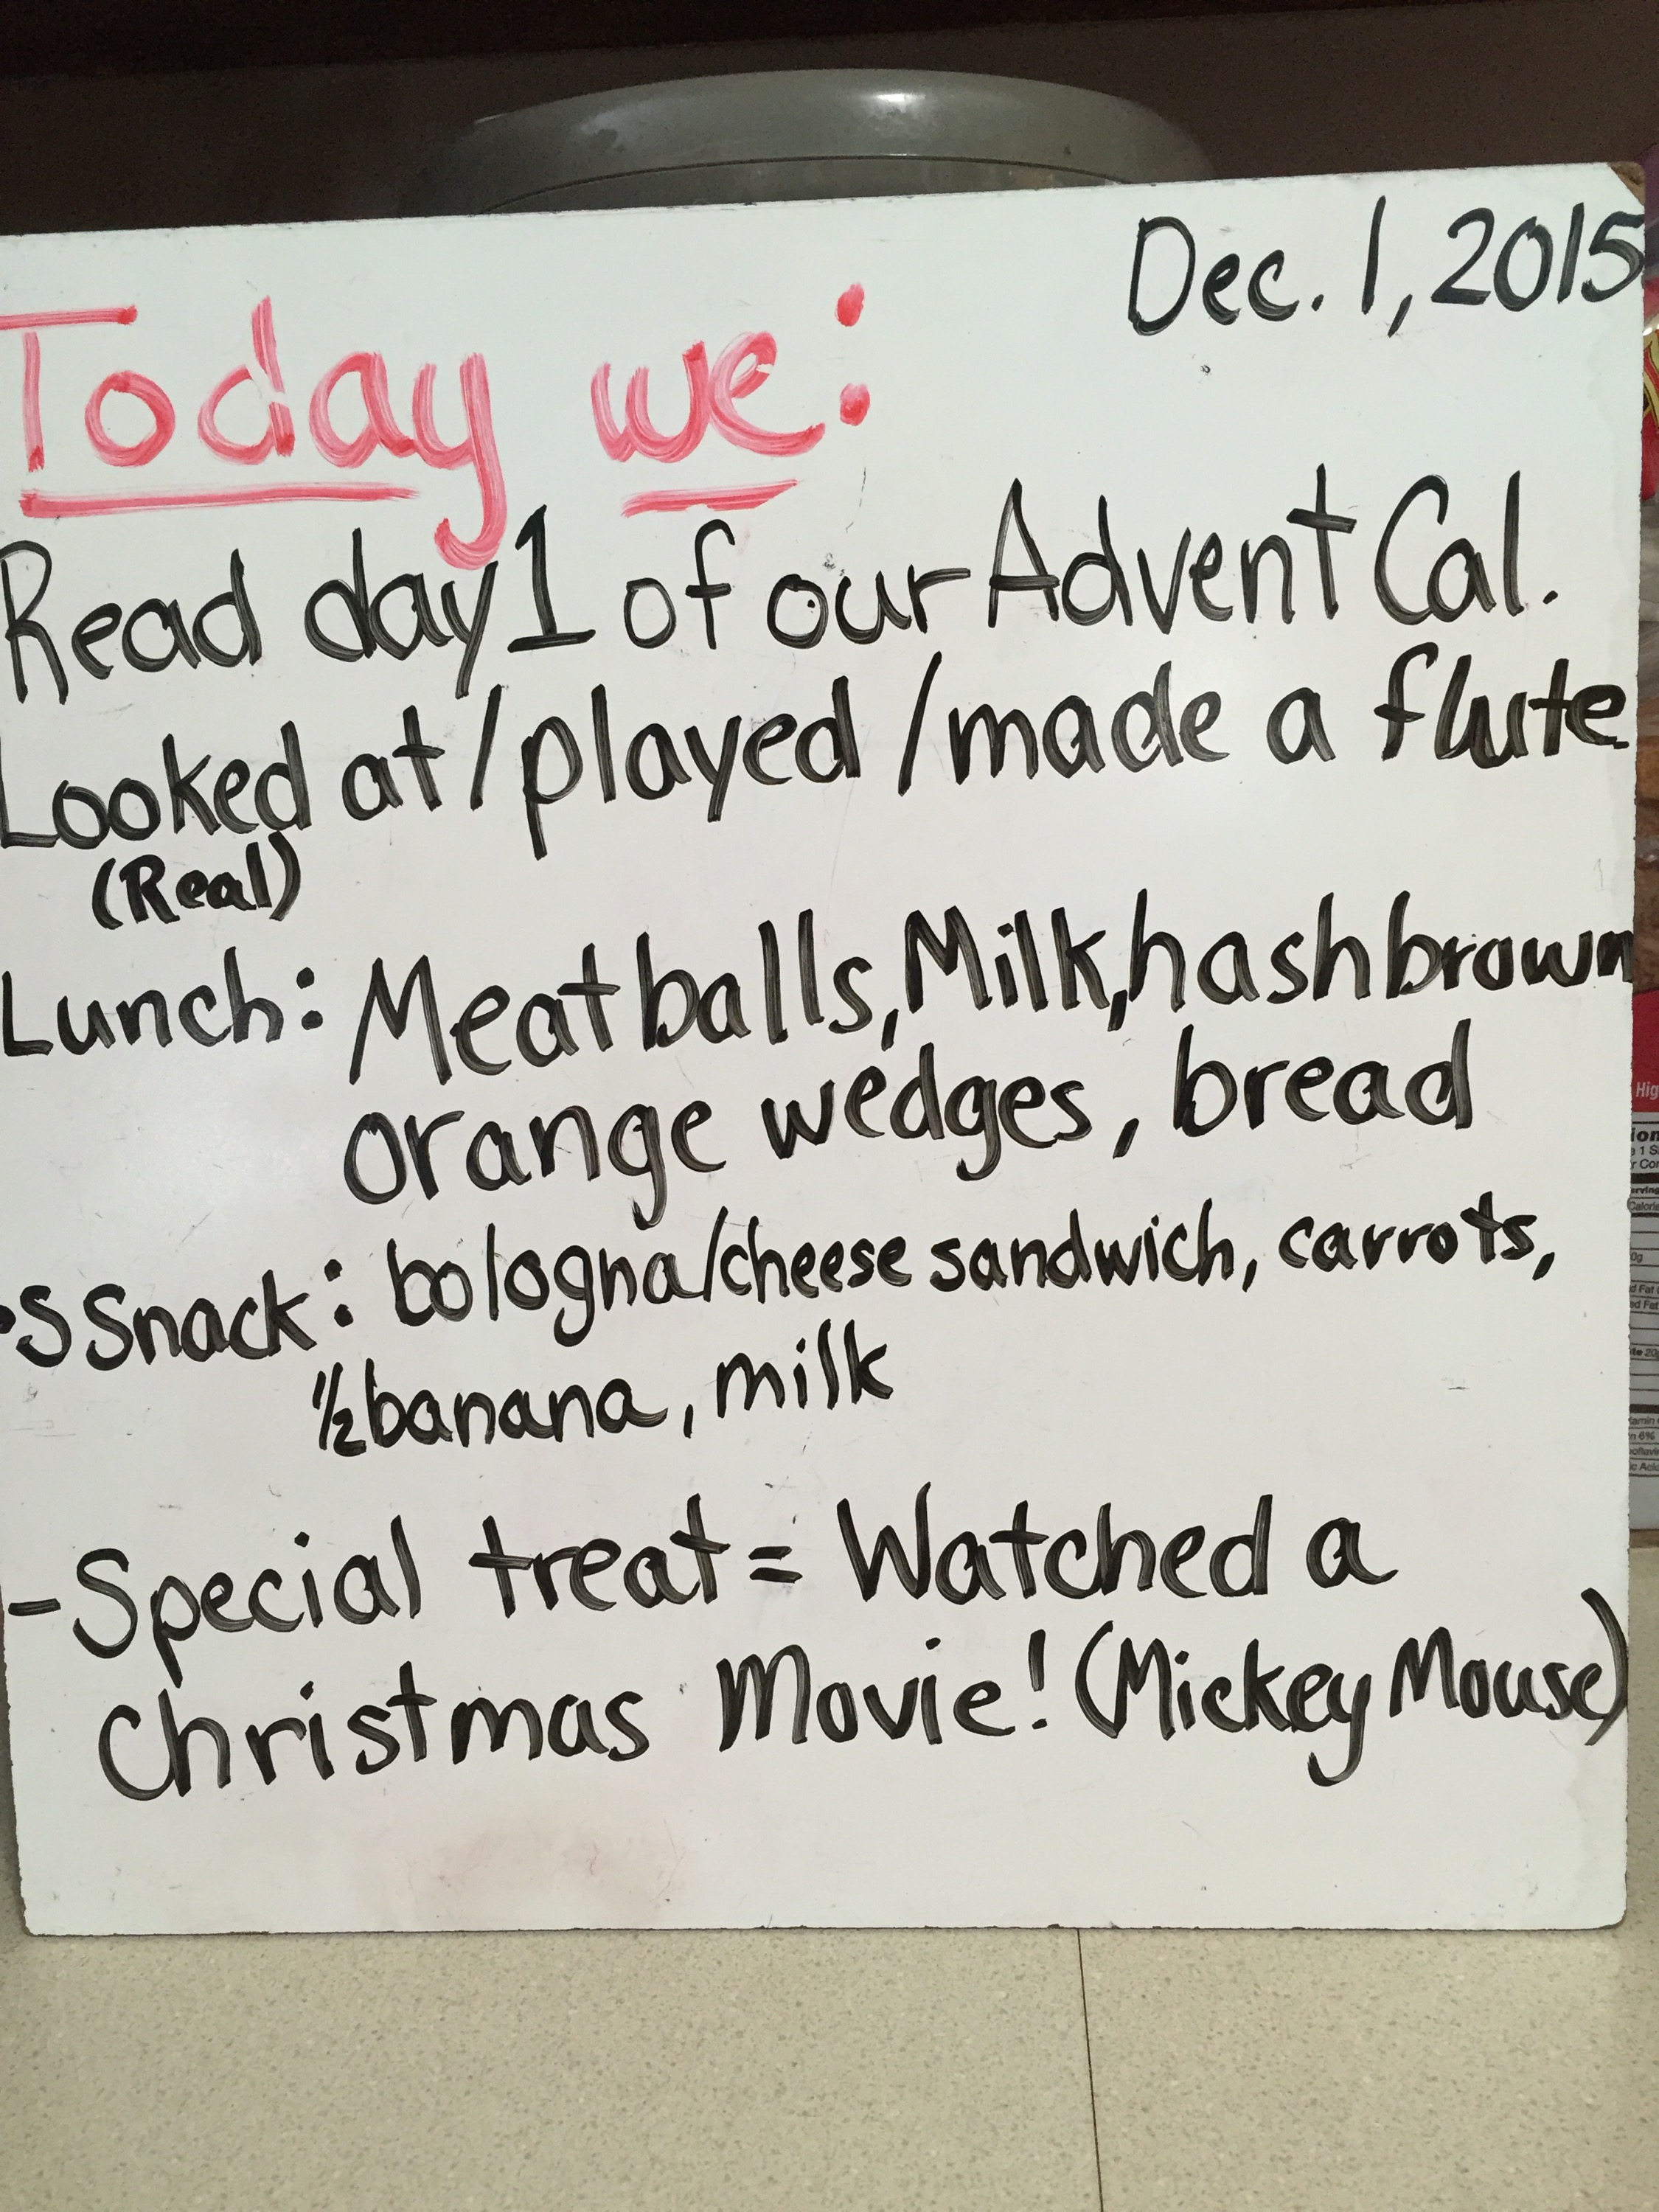 Dec. 1, 2015
Today we:
Read day 1 of our Advent Cal.
Looked at/played/made a flute.
(Real)
Lunch: Meatballs, Milk, hashbrown
orange wedges, bread
S Snack: bologna/cheese sandwich, carrots,
½ banana, milk
-Special treat = Watched a
Christmas Movie! (Mickey Mouse)